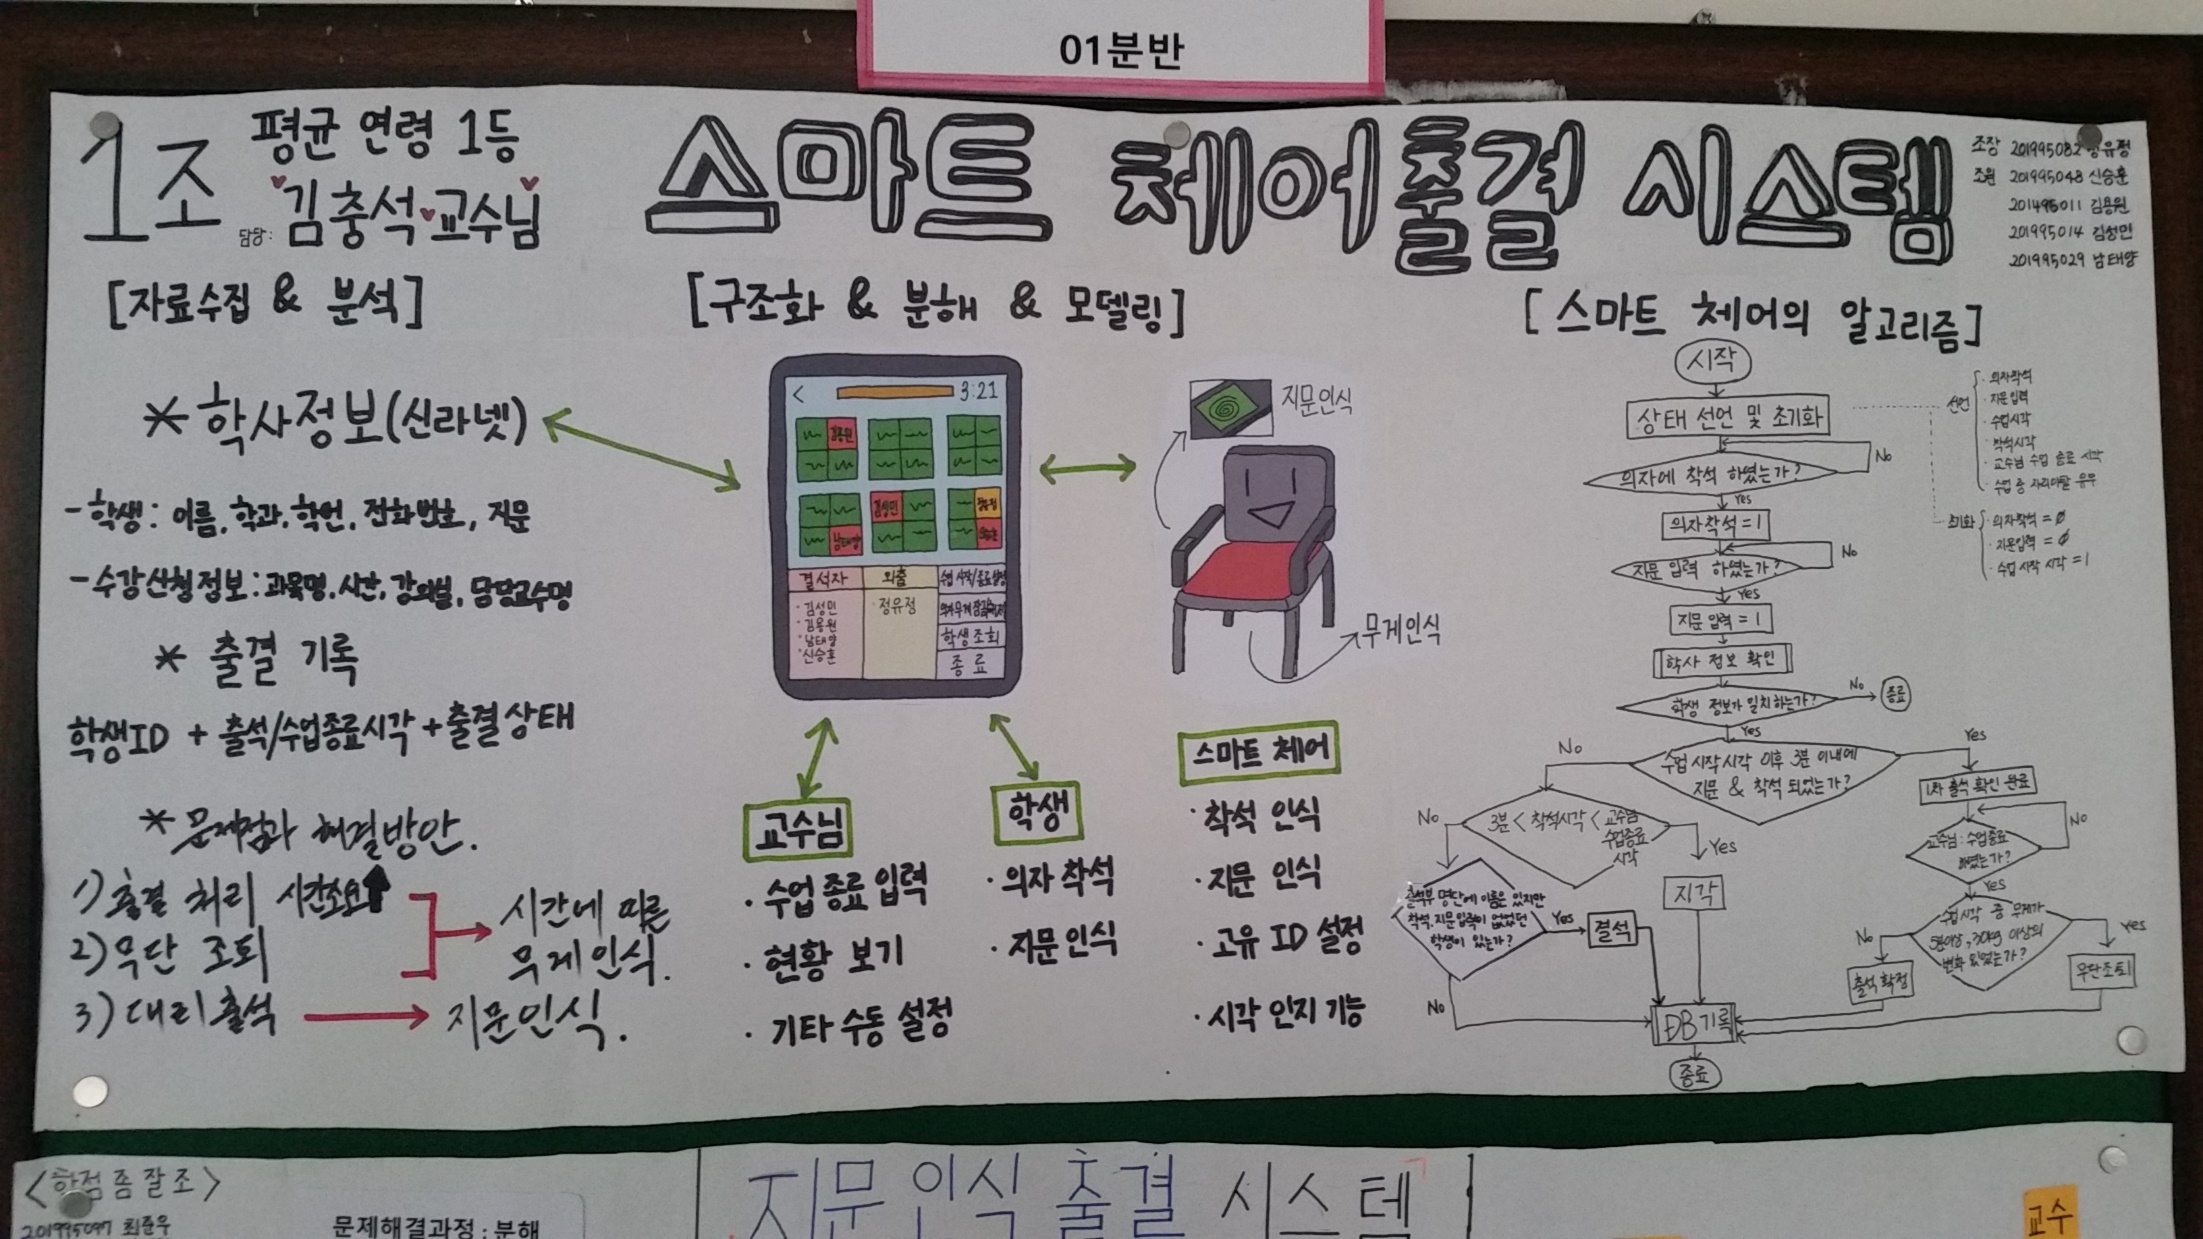 01분반
1조
평균 연령 1등
담당: 김충석 교수님
스마트 체어 출결 시스템
조장 201995082 정유정
조원 201995048 신승훈
201495011 김용원
201995014 김성민
201995029 남태양
[자료수집 & 분석]
* 학사정보(신라넷)
- 학생 : 이름, 학과, 학번, 전화번호, 지문
- 수강신청정보 : 과목명, 시간, 강의실, 담당교수명
* 출결 기록
학생ID + 출석/수업종료시각 + 출결상태
* 문제점과 해결방안.
1) 출결 처리 시간소요
2) 무단 조퇴
시간에 따른
무게인식.
3) 대리출석
지문인식.
[구조화 & 분해 & 모델링]
< 3:21
김용원
김성민
정유정
남태양
결석자
· 김성민
· 김용원
· 남태양
· 신승훈
외출
· 정유정
학생조회
종료
지문인식
무게인식
교수님
· 수업 종료 입력
· 현황 보기
· 기타 수동 설정
학생
· 의자 착석
· 지문인식
스마트 체어
· 착석 인식
· 지문 인식
· 고유 ID 설정
· 시각 인지 기능
[스마트 체어의 알고리즘]
시작
상태 선언 및 초기화
선언
· 의자착석
· 지문입력
· 수업시각
· 착석시각
· 교수님 수업 종료 시각
· 수업 중 자리이탈 유무
초기화
· 의자착석 = 0
· 지문입력 = 0
· 수업 시작 시각 = 1
의자에 착석 하였는가?
No
Yes
의자착석 = 1
지문 입력 하였는가?
No
Yes
지문입력 = 1
학사 정보 확인
학생 정보가 일치하는가?
No
종료
Yes
수업 시작시각 이후 3분 이내에
지문 & 착석 되었는가?
No
Yes
3분 < 착석시각 < 교수님
수업종료
시각
No
Yes
지각
출석부 명단에 이름은 있지만
착석, 지문입력이 없었던
학생이 있는가?
Yes
결석
No
1차 출석 확인 완료
교수님 : 수업종료
하였는가?
No
Yes
수업시각 중 무게가
5분이상, 30kg 이상의
변화 있었는가?
No
Yes
출석 확정
무단조퇴
DB기록
종료
<학점좀잘조>
201995097 최준우
문제해결과정 : 분해
지문인식 출결 시스템
교수